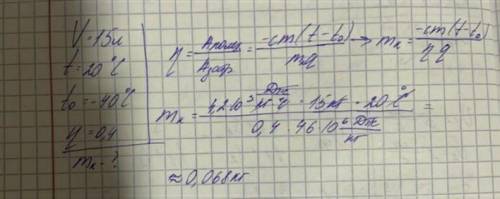 V = 15л
t = 20°C
t₀ = -40°C
η = 0,4
mₖ - ?
η = Aполез / Aзатр = -cm(t-t₀) / mq → mₖ = -cm(t-t₀) / ηq
mₖ = 4,2·10³ Дж/кг·°C · 15кг · 20°C / 0,4 · 46·10⁶ Дж/кг =
≈ 0,068кг